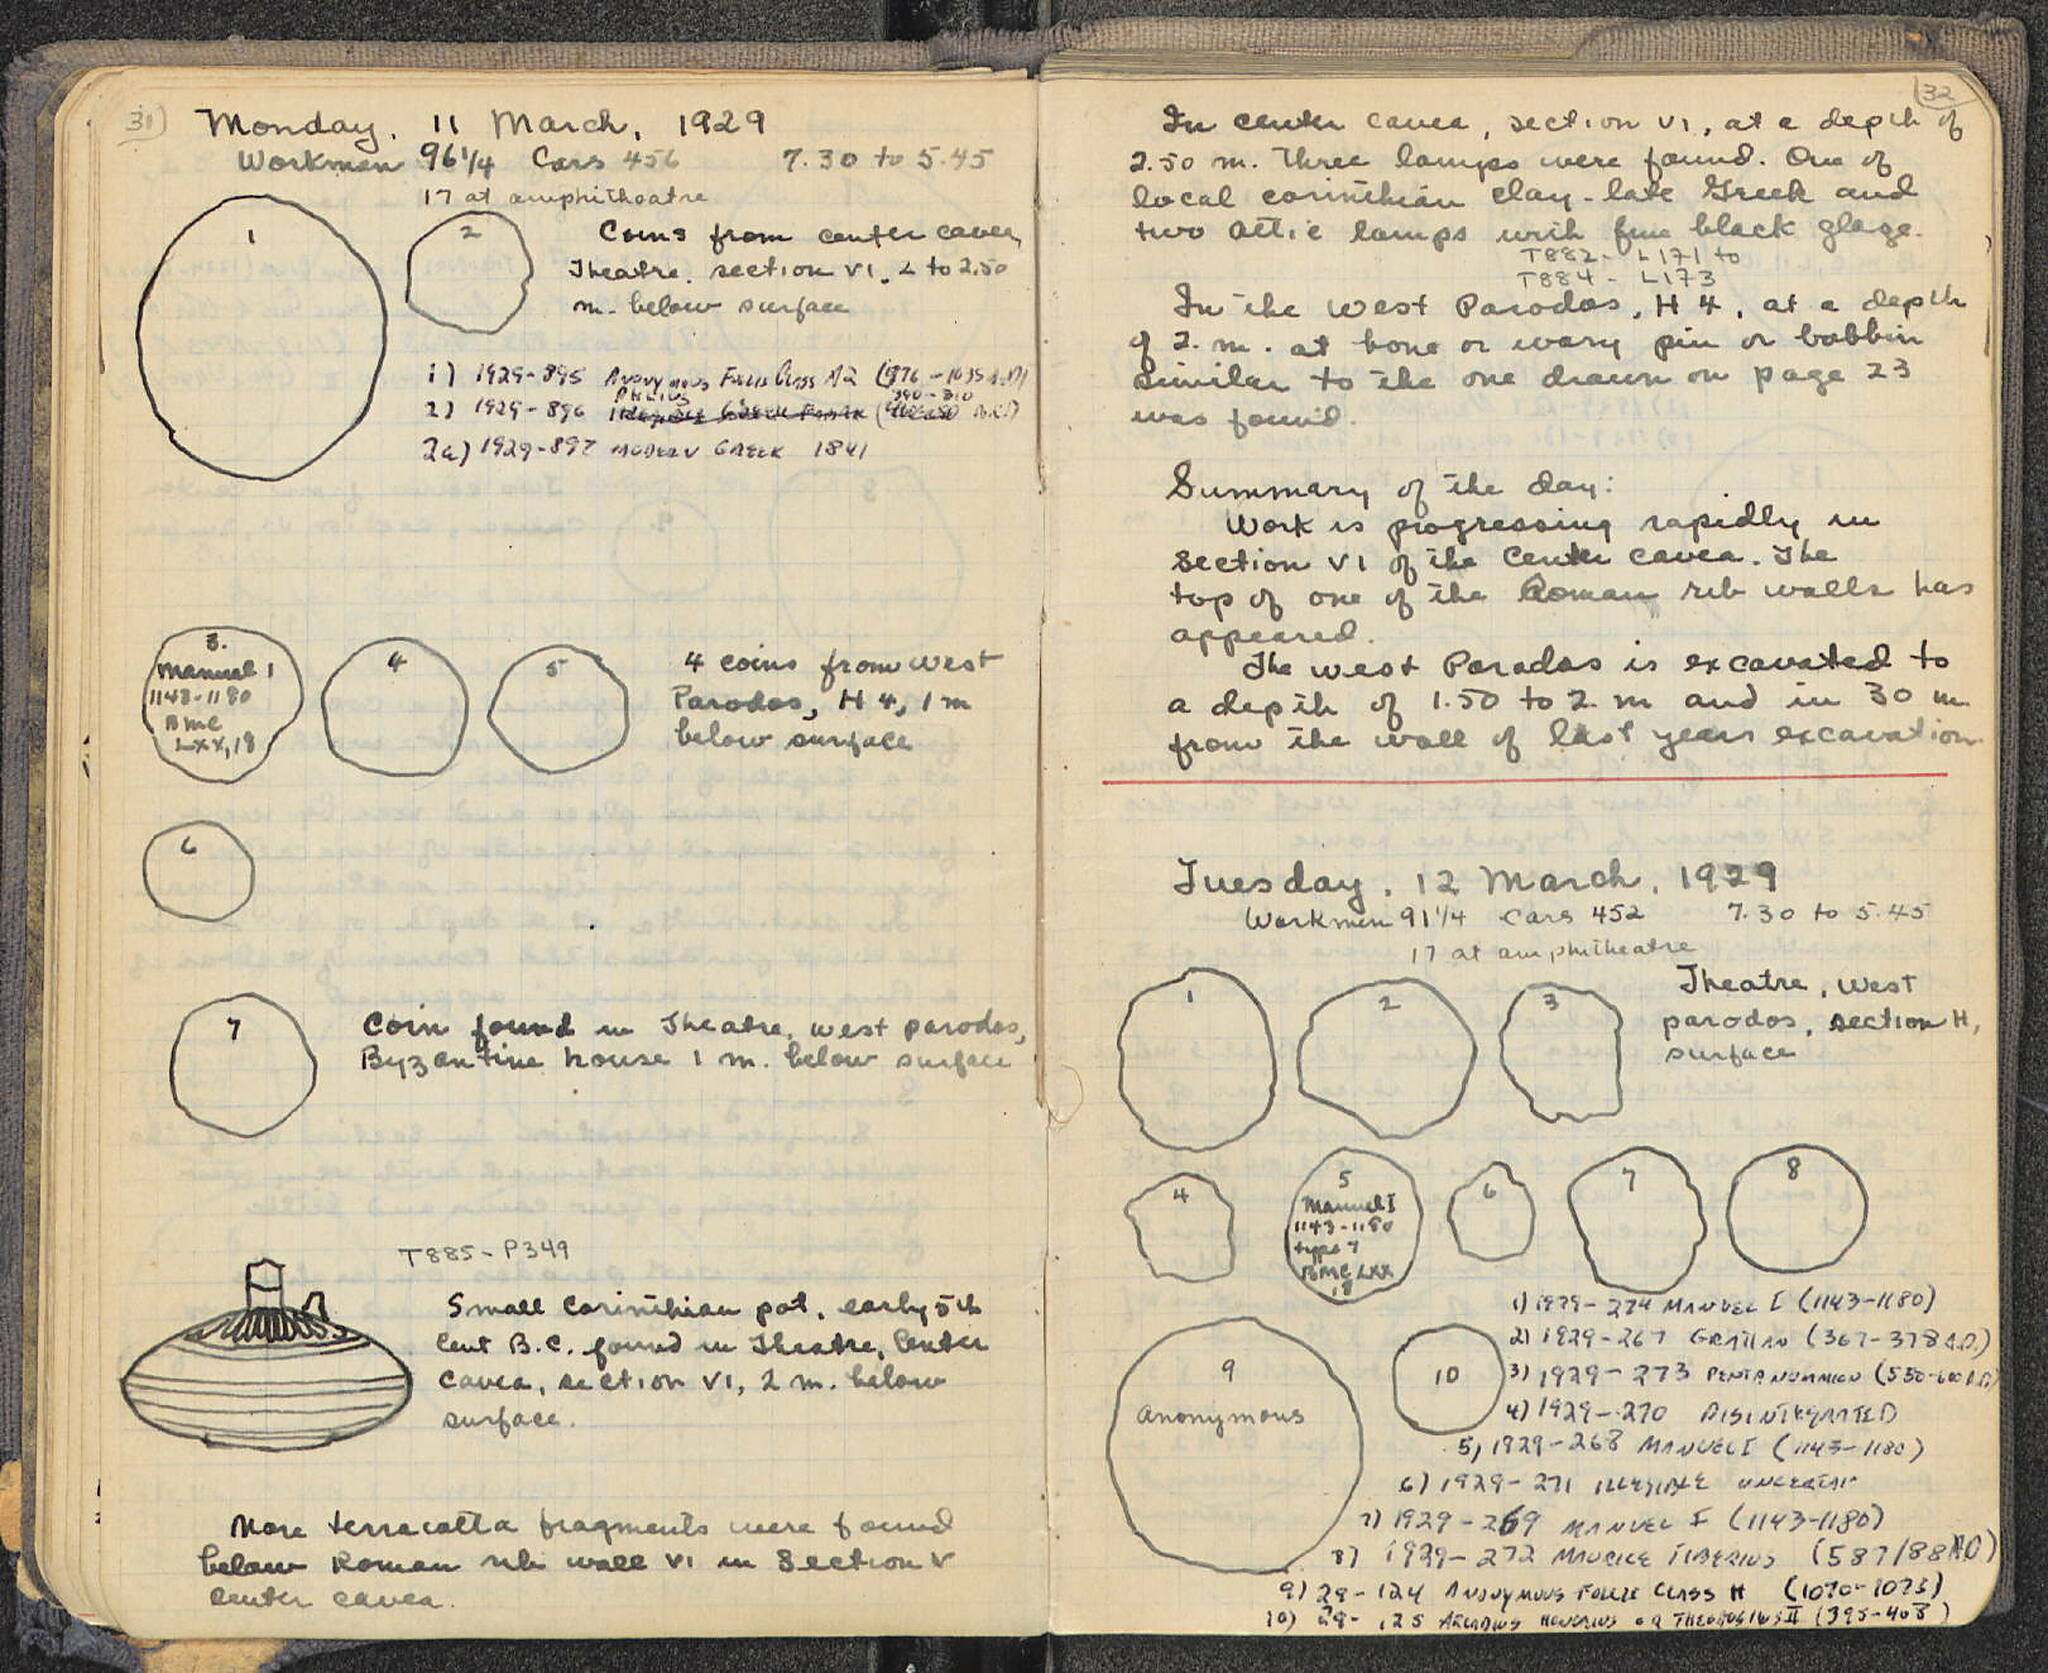 31
Monday. 11 March, 1929
Workmen 96 1/4 Cars 456 7.30 to 5.45
17 at amphitheatre
1
2
Coins from center cavea,
Theatre. section VI. 2 to 2.50
m. below surface
1) 1929-895 Anonymous Follis Class A2 (976-1035 A.D.)
390-310
2) 1929-896
2a) 1929-897 MODERN GREEK 1841
3.
Manuel I
1143-1180
BMC
LXX, 18
4
5
4 coins from West
Parodos, H 4, 1 m
below surface
6
7
Coin found in Theatre, west parodos,
Byzantine house 1 m. below surface
T885-P349
Small Corinthian pot, early 5th
Cent B.C. found in Theatre, Center
Cavea, section VI, 2 m. below
surface.
More terracotta fragments were found
below Roman rib wall VI in Section V
Center cavea.
32
In center cavea, section VI, at a depth of
2.50 m. three lamps were found. One of
local corinthian clay - late Greek and
two Attic lamps with fine black glaze.
T882 - L171 to
T884 - L173
In the West Parodos, H 4, at a depth
of 2. m. at bone or ivory pin or bobbin
similar to the one drawn on page 23
was found.
Summary of the day:
Work is progressing rapidly in
Section VI of the Center cavea. The
top of one of the Roman rib walls has
appeared.
The West Parodos is excavated to
a depth of 1.50 to 2. m and in 30 m
from the wall of last years excavation
Tuesday. 12 March, 1929
Workmen 91 1/4 Cars 452 7.30 to 5.45
17 at amphitheatre
1
2
3
Theatre, West
parodos, section H,
surface
4
5
Manuel I
1143-1180
type 7
BMC LXX
18
6
7
8
1) 1929-274 MANUEL I (1143-1180)
2) 1929-267 GRATIAN (367-378 A.D.)
9
Anonymous
10
3) 1929-273 PENTANUMMION (550-600 A.D.)
4) 1929-270 DISINTEGRATED
5) 1929-268 MANUEL I (1143-1180)
6) 1929-271 ILLEGIBLE UNCERTAIN
7) 1929-269 MANUEL I (1143-1180)
8) 1929-272 MAURICE TIBERIUS (587/88 A.D)
9) 29-124 ANONYMOUS FOLLIS CLASS H (1070-1073)
10) 29-125 ARCADIUS HONORIUS OR THEODOSIUS II (395-408)